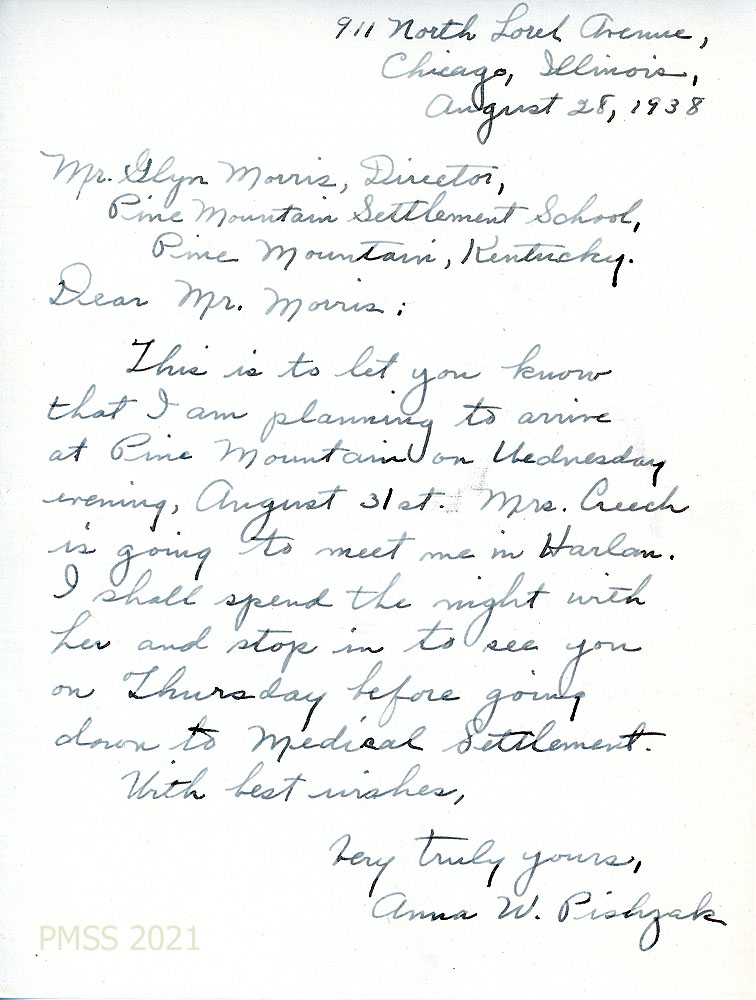 911 North Lorel Avenue,
Chicago, Illinois,
August 28, 1938
Mr. Glyn Morris, Director,
Pine Mountain Settlement School,
Pine Mountain, Kentucky.
Dear Mr. Morris:
This is to let you know
that I am planning to arrive
at Pine Mountain on Wednesday
evening, August 31st. Mrs. Creech
is going to meet me in Harlan.
I shall spend the night with
her and stop in to see you
on Thursday before going
down to Medical Settlement.
With best wishes,
Very truly yours,
Anna W. Pishzak
PMSS 2021